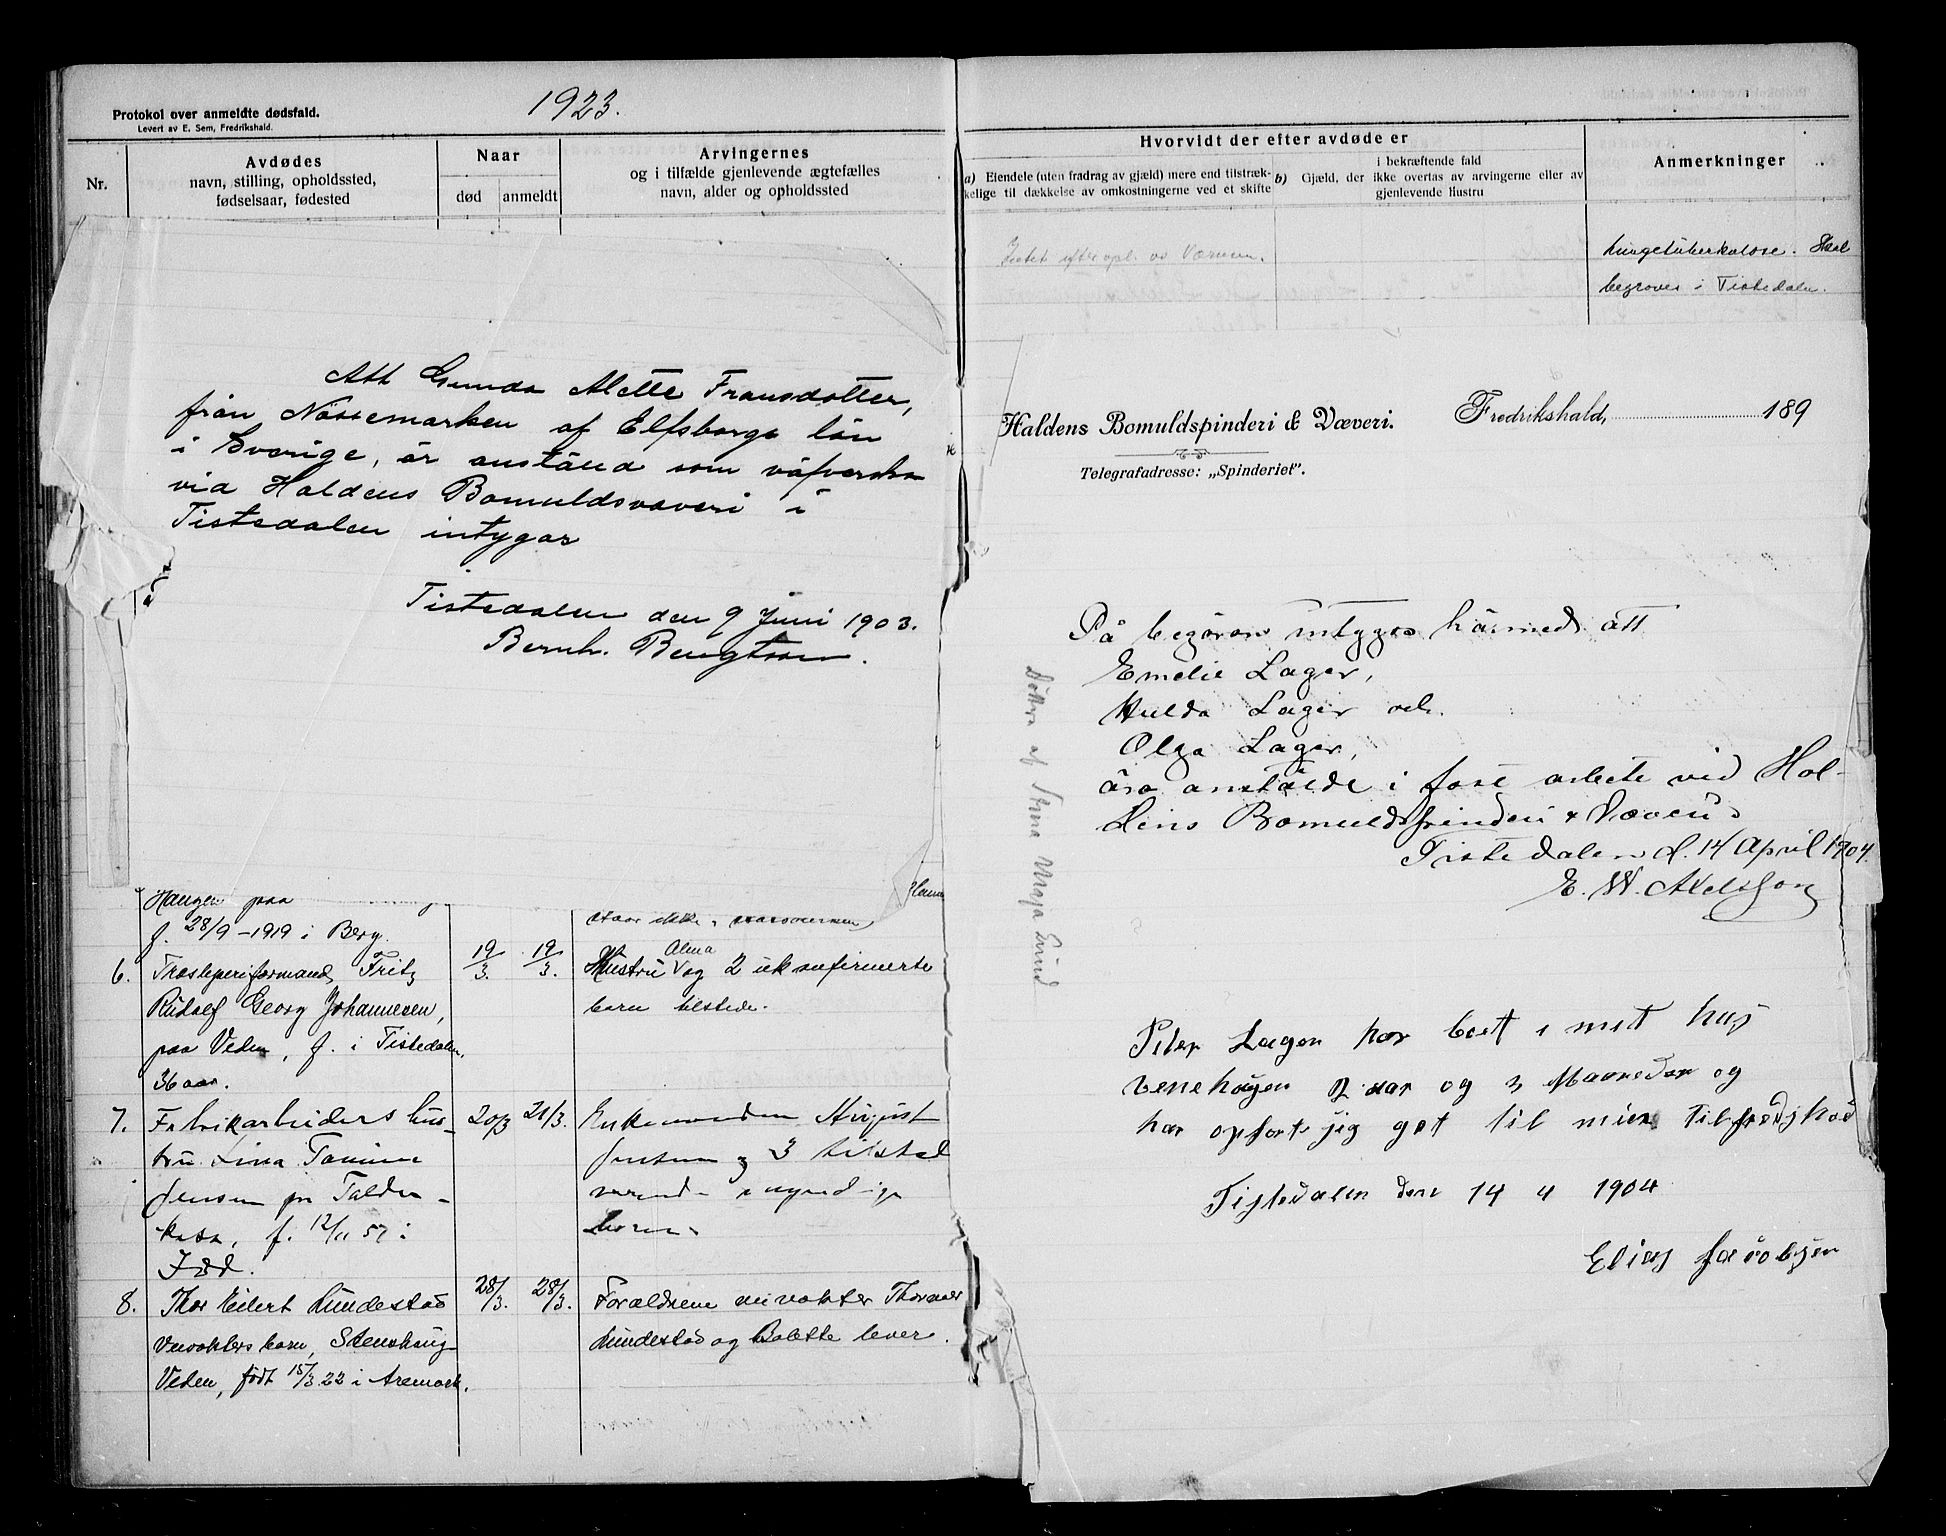 1923.
Protokol over anmeldte dødsfald.
Levert av E. Sem, Fredrikshald.
Nr.
Avdødes
navn, stilling, opholdssted,
fødselsaar, fødested
Naar
død
anmeldt
Arvingernes
og i tilfælde gjenlevende ægtefælles
navn, alder og opholdssted
Att Gunda Alette Fransdotter,
från Nössemarken af Elfsborgs län
i Sverige, är anstäld som väfverska
vid Haldens Bomuldsvæveri i
Tistedalen intygar
Tistedalen den 9 Juni 1903.
Bernh. Bengtson.
Haugen paa
f. 28/9 - 1919 i Berg.
6. Træsliperiformand Fritz
Rudolf Georg Johannesen,
paa Veden, f. i Tistedalen,
36 aar.
19/3. 19/3.
Hustru Alma og 2 ukonfirmerte
barn tilstede.
7. Fabrikarbeiders hus-
tru Lina Jensen
f. 12/11 57 i
Idd.
20/3 21/3.
Enkemanden August
Jensen og 3
barn.
8. Thor Eilert Lundestad
barn, Stenshaug
Veden, født 15/3 22 i Aremark.
28/3. 28/3.
Forældrene
Lundestad og Bolette lever.
Hvorvidt der efter avdøde er
a) Eiendele (uten fradrag av gjæld) mere end tilstræk-
kelige til dækkelse av omkostningerne ved et skifte
b) Gjæld, der i bekræftende fald ikke overtas av arvingerne eller av gjenlevende Hustru
Anmerkninger
Intet efter opl. av
Lungetuberkulose. Skal
begraves i Tistedalen.
Haldens Bomuldspinderi & Væveri.
Fredrikshald, 189
Telegrafadresse: „Spinderiet".
På begäran intygas härmed att
Emelie Lager,
Hulda Lager och
Olga Lager,
äro anstälde i fast arbete vid Hal-
dens Bomuldspinderi & Væveri
Tistedalen d. 14 April 1904.
E. W. Axelsson
Döttra af Stina Maja Lind
Peter Lager har boet i mit hus
Venehögen 2 aar og 3 Maaneder og
har opført sig got til min Tilfredshed
Tistedalen den 14 4 1904
Elias Jacobsen